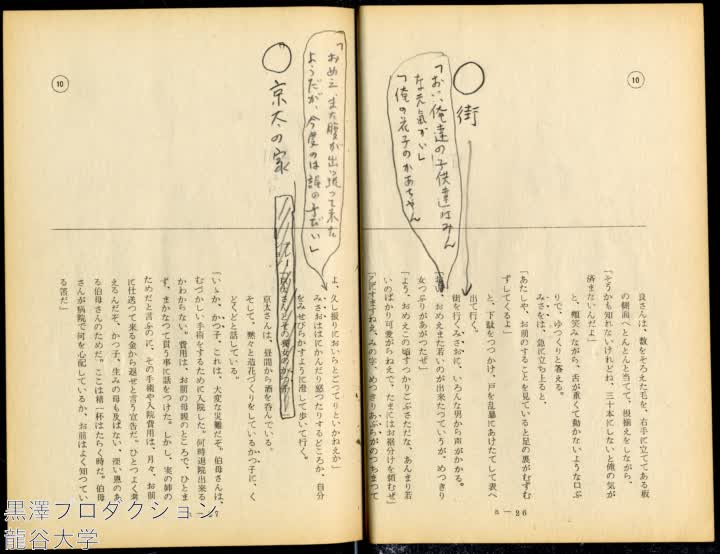 ⑩
良さんは、数をそろえた毛を、右手に立ててある板
の側面へとんとんと当てて、根揃えをしながら、
「そうかも知れないけれどね、三十本にしないと俺の気が
済まないんだよ」
と、頰笑みながら、舌が重くて動かないような口ぶ
りで、ゆっくりと答える。
みさをは、急に立ち上ると、
「あたしや、お前のすることを見ていると足の裏がむずむ
ずしてくるよ」
と、下駄をつっかけ、戸を乱暴にあけたてして表へ
出て行く。
○街
「おい、俺達の子供達はみん
な元氣かい」
「俺の花子のかあちゃん
街を行くみさおに、いろんな男から声がかかる。
おめえまた若いのが出来たつていうが、めつきり
女つぷりがあがつたぜ」
「よう、おめえこの頃すつかりごぶさただな、あんまり若
いのばかり可愛がらねえで、たまにはお裾分けを頼むぜ」
8—26
⑩
「おめえ、また腹が出っ張って来た
ようだが、今度のは誰の子だい」
よ、久し振りにおいらとごつてりといかねえか」
みさおははにかんだり怒つたりするどころか、自分
をみせびらかすように澄して歩いて行く。
○京太の家
京太さんは、昼間から酒を呑んでいる。
そして、黙々と造花づくりをしているかつ子に、く
どくどと話している。
「いゝか、かつ子、これは、大変な災難だぞ。伯母さんは、
むづかしい手術をするために入院した。何時退院出来る
かわからない。費用は、お前の母親のところで、ひとま
ず、まかなつて貰う事に話をつけた。しかし、実の姉の
ためだと言ふのに、その手術や入院費用は、月々、お前
に仕送つて来る金から返せと言う宣告だ。ひとつよく考
えるんだぞ、かつ子、生みの母も及ばない、深い恩のあ
る伯母さんのためだ。ここは精一杯はたらく時だ。伯母
さんが病院で何を心配しているか、お前はよく知つてい
る筈だ」
黒澤プロダクション
龍谷大学